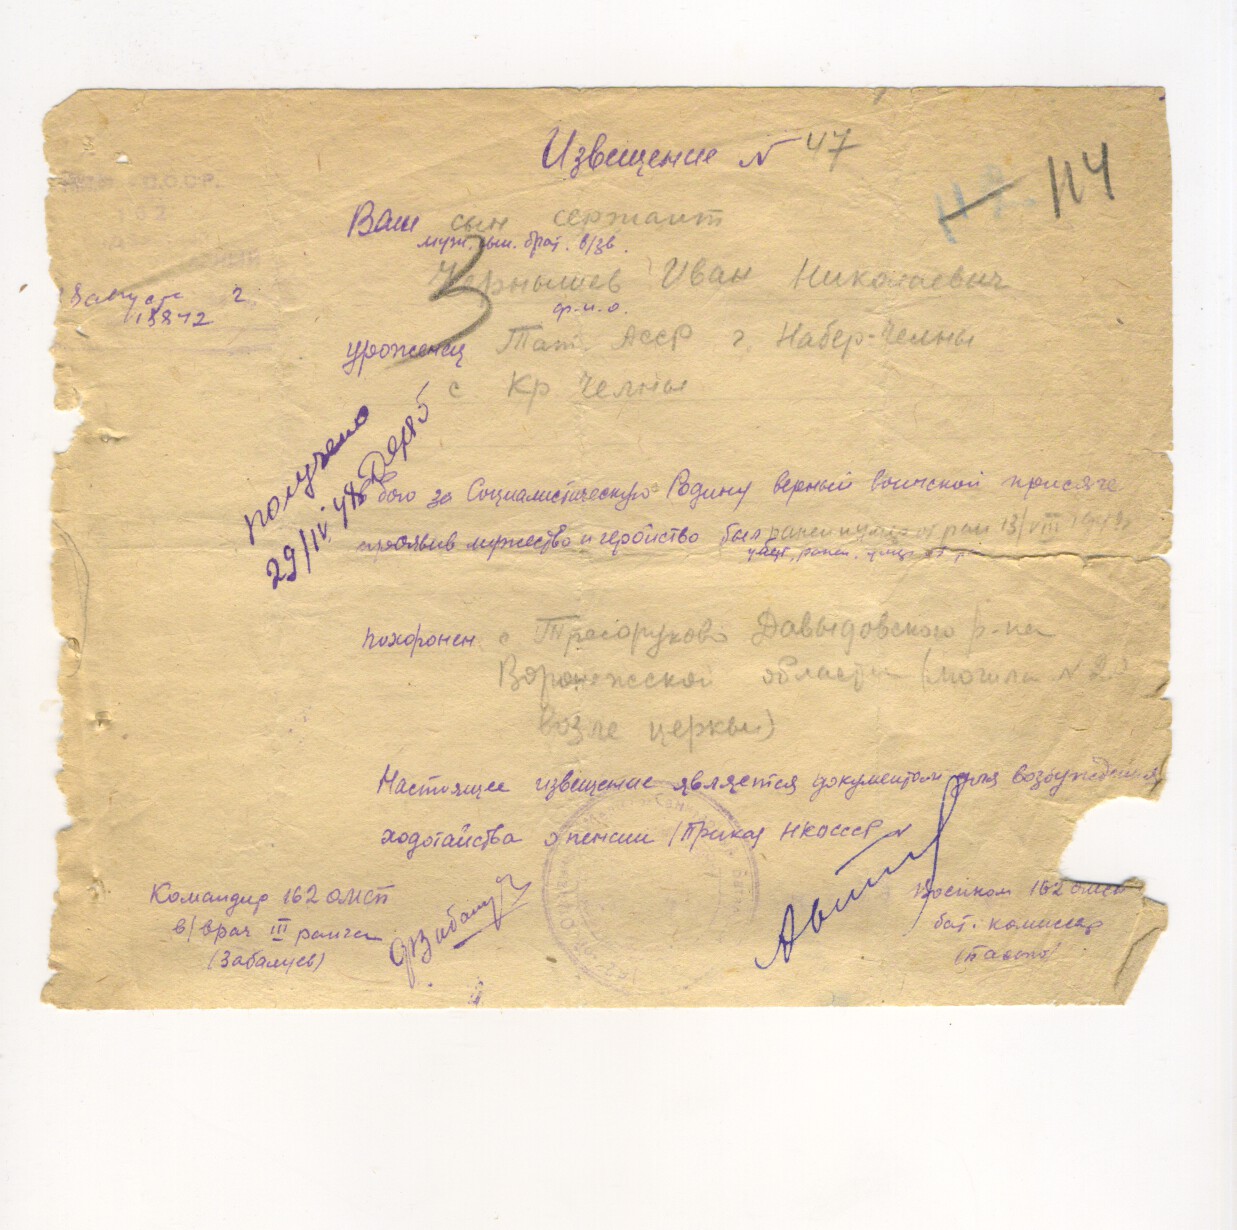 Извещение № 47
114
С.С.С.Р.
162
Ваш сын сержант
муж. сын. брат. в/зв.
Чернышев Иван Николаевич
ф.и.о.
августа г.
уроженец Тат. АССР г. Набер-Челны
с. Кр Челны
получено
29/IV
в бою за Социалистическую Родину верный воинской присяге
проявив мужество и геройство был ранен и умер от ран 13/VIII 1942
ранен. умер от ран
похоронен с Трясоруково Давыдовского р-на
Воронежской области (могила № 2
возле церкви)
Настоящее извещение является документом для возбуждения
ходотайства о пенсии (Приказ НКОСССР №
Командир 162 ОМСБ
в/врач III ранга
(Забалуев)
Военком 162 ОМСБ
бат. комиссар